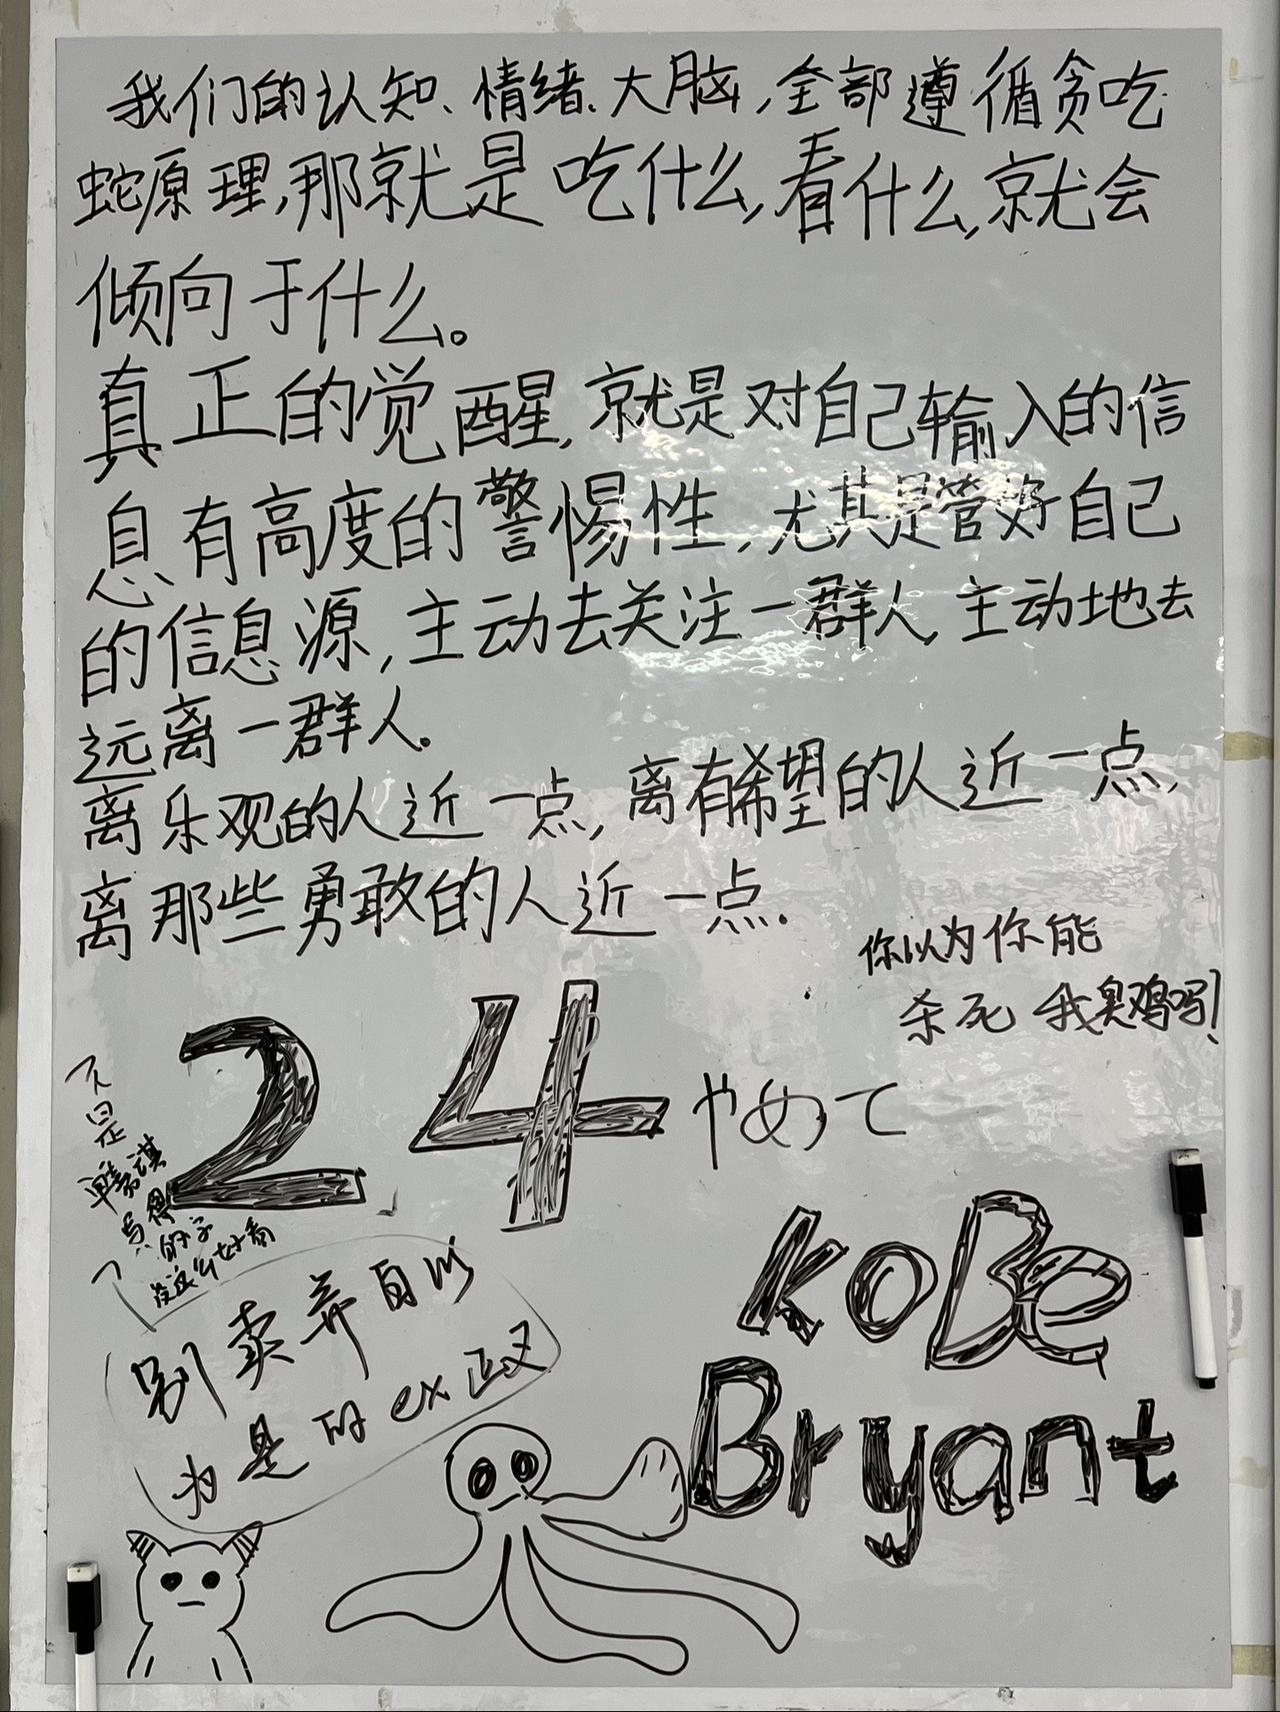 我们的认知、情绪、大脑，全部遵循贪吃
蛇原理，那就是吃什么，看什么，就会
倾向于什么。
真正的觉醒，就是对自己输入的信
息有高度的警惕性，尤其是管好自己
的信息源，主动去关注一群人，主动地去
远离一群人。
离乐观的人近一点，离有希望的人近一点，
离那些勇敢的人近一点.
你以为你能
杀死我臭鸡吗！
24
やめて
不是
写得
的字
没这么好看
别卖弄自以
为是的ex正义
KoBe
Bryant